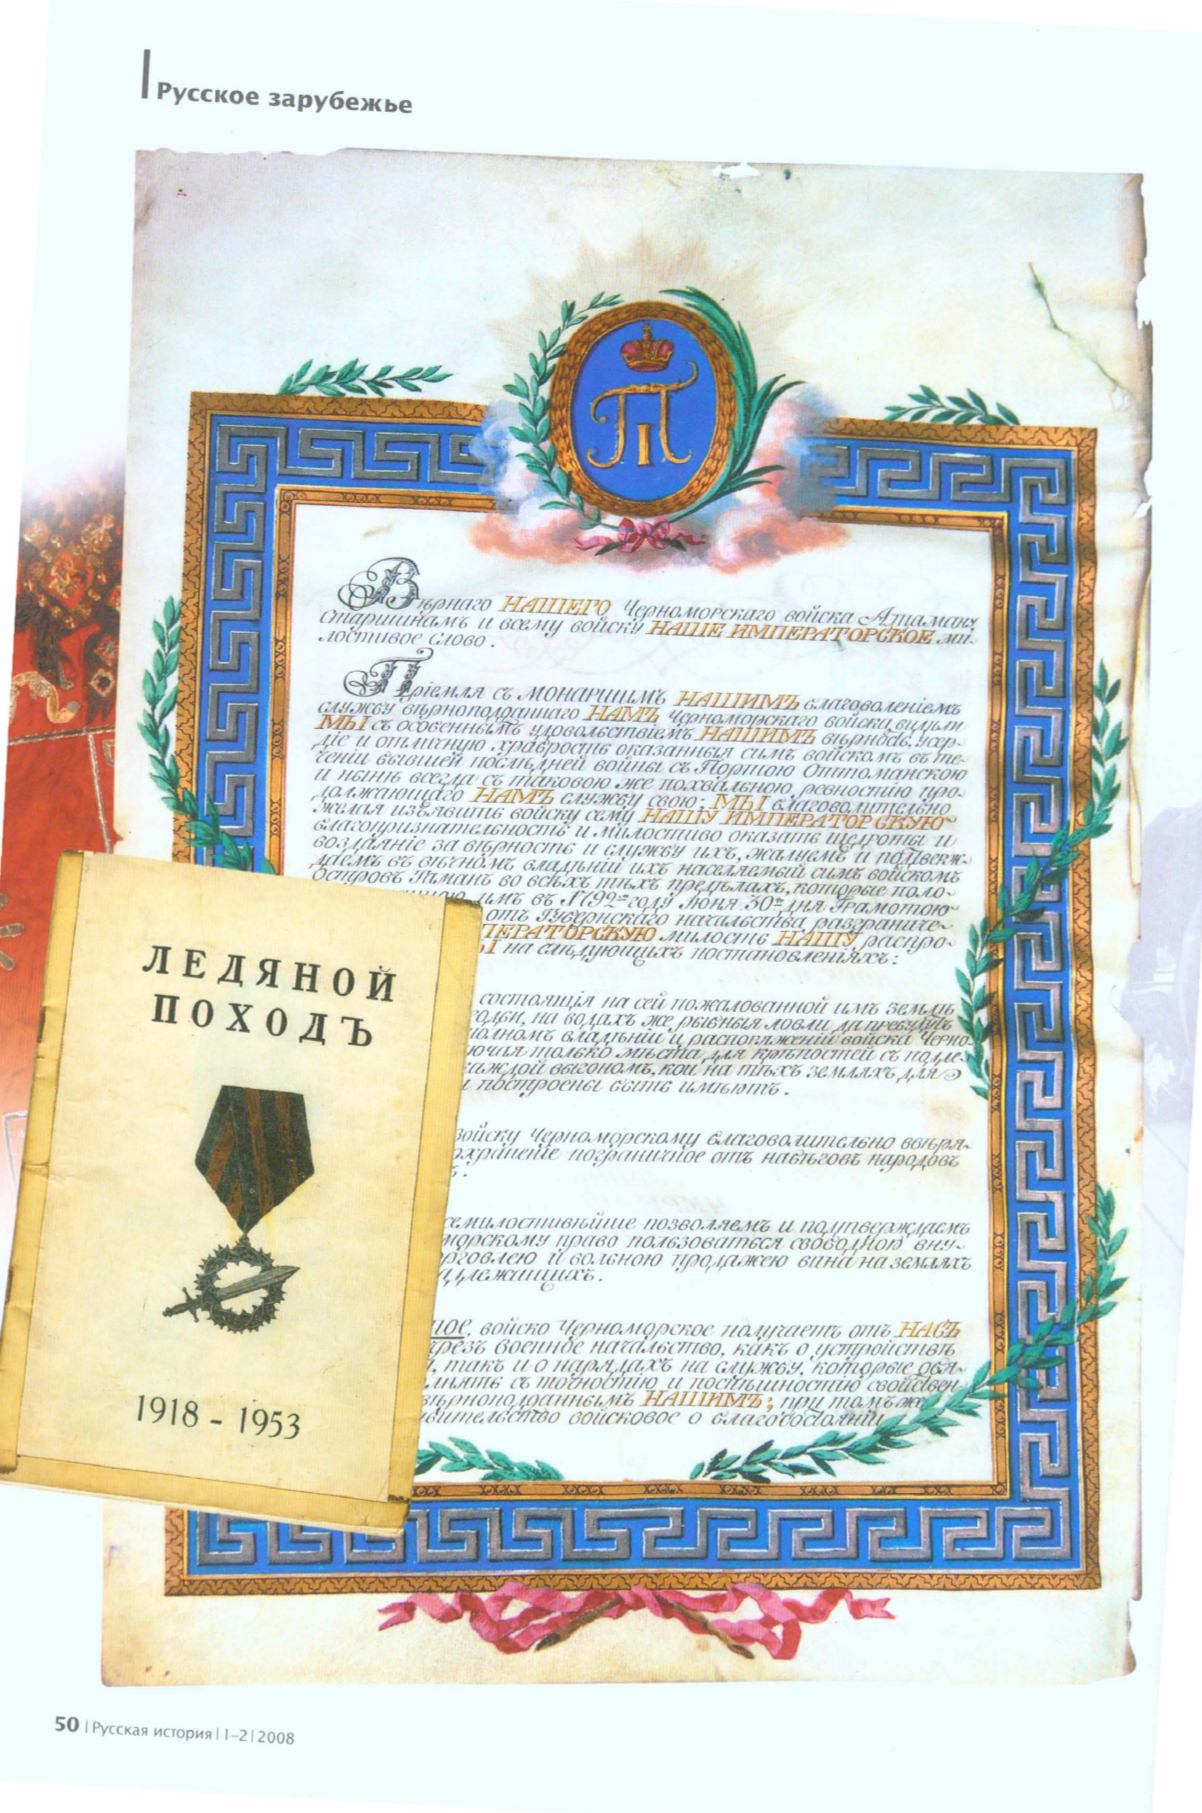 Русское зарубежье
П I
Вѣрнаго НАШЕГО Черноморскаго войска Атаману,
Старшинамъ и всему войску НАШЕ ИМПЕРАТОРСКОЕ ми-
лостивое слово.
Пріемля съ монаршимъ НАШИМЪ благоволеніемъ
службу вѣрноподданнаго НАМЪ Черноморскаго войска, видѣли
МЫ съ особеннымъ удовольствіемъ НАШИМЪ вѣрность, усер-
діе и отличную храбрость оказанныя симъ войскомъ въ те-
ченіи бывшей послѣдней войны съ Портою Оттоманскою
и нынѣ всегда съ таковою же похвальною ревностію про-
должающаго НАМЪ службу свою: МЫ благоволительно
желая изъявить войску сему НАШУ ИМПЕРАТОРСКУЮ
благопризнательность и милостиво оказать щедроты и
воздаяніе за вѣрность и службу ихъ, жалуемъ и подтверж-
даемъ въ вѣчномъ владѣніи ихъ населяемый симъ войскомъ
Островъ Таманъ во всѣхъ тѣхъ предѣлахъ, которые поло-
имъ въ 1792 году Июня 30 дня Грамотою
отъ Губернскаго начальства разграниче-
ПЕРАТОРСКУЮ милость НАШУ, распро-
Ы на слѣдующихъ постановленіяхъ:
состоящія на сей пожалованной имъ землѣ
годьи, на водахъ же рыбныя ловли да пребудутъ
полномъ владѣніи и распоряженіи войска Черно-
ючая только мѣста для крѣпостей съ подле-
каждой выгономъ, кои на тѣхъ земляхъ для
и построены быть имѣютъ.
войску Черноморскому благоволительно ввѣря-
охраненіе пограничное отъ набѣговъ народовъ
семилостивѣйше позволяемъ и подтверждаемъ
морскому право пользоваться свободною вну-
рговлею и вольною продажею вина на земляхъ
адлежащихъ.
ное, войско Черноморское получаетъ отъ НАСЪ
чрезъ военное начальство, какъ о устройствѣ
, такъ и о нарядахъ на службу, которые обя-
лнять съ точностію и поспѣшностію свойствен
вѣрноподданнымъ НАШИМЪ; при томъ же
вительство войсковое о благосостояніи
ЛЕДЯНОЙ
ПОХОДЪ
1918 - 1953
50 | Русская история | 1–2 | 2008